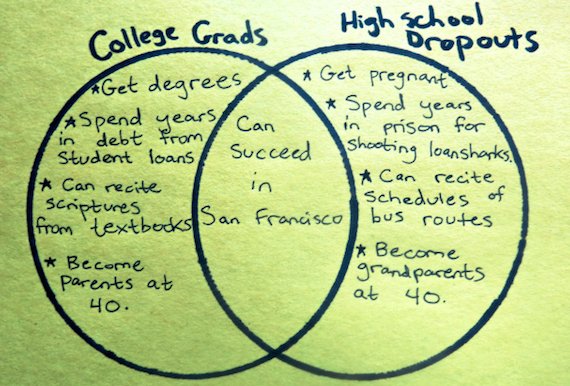 College Grads
★Get degrees
★Spend years
in debt from
student loans
★ Can recite
scriptures
from textbooks
★ Become
parents at
40.
Can
Succeed
in
San Francisco
High school
Dropouts
★ Get pregnant
★ Spend years
in prison for
shooting loansharks.
★ Can recite
schedules of
bus routes
★ Become
grandparents
at 40.